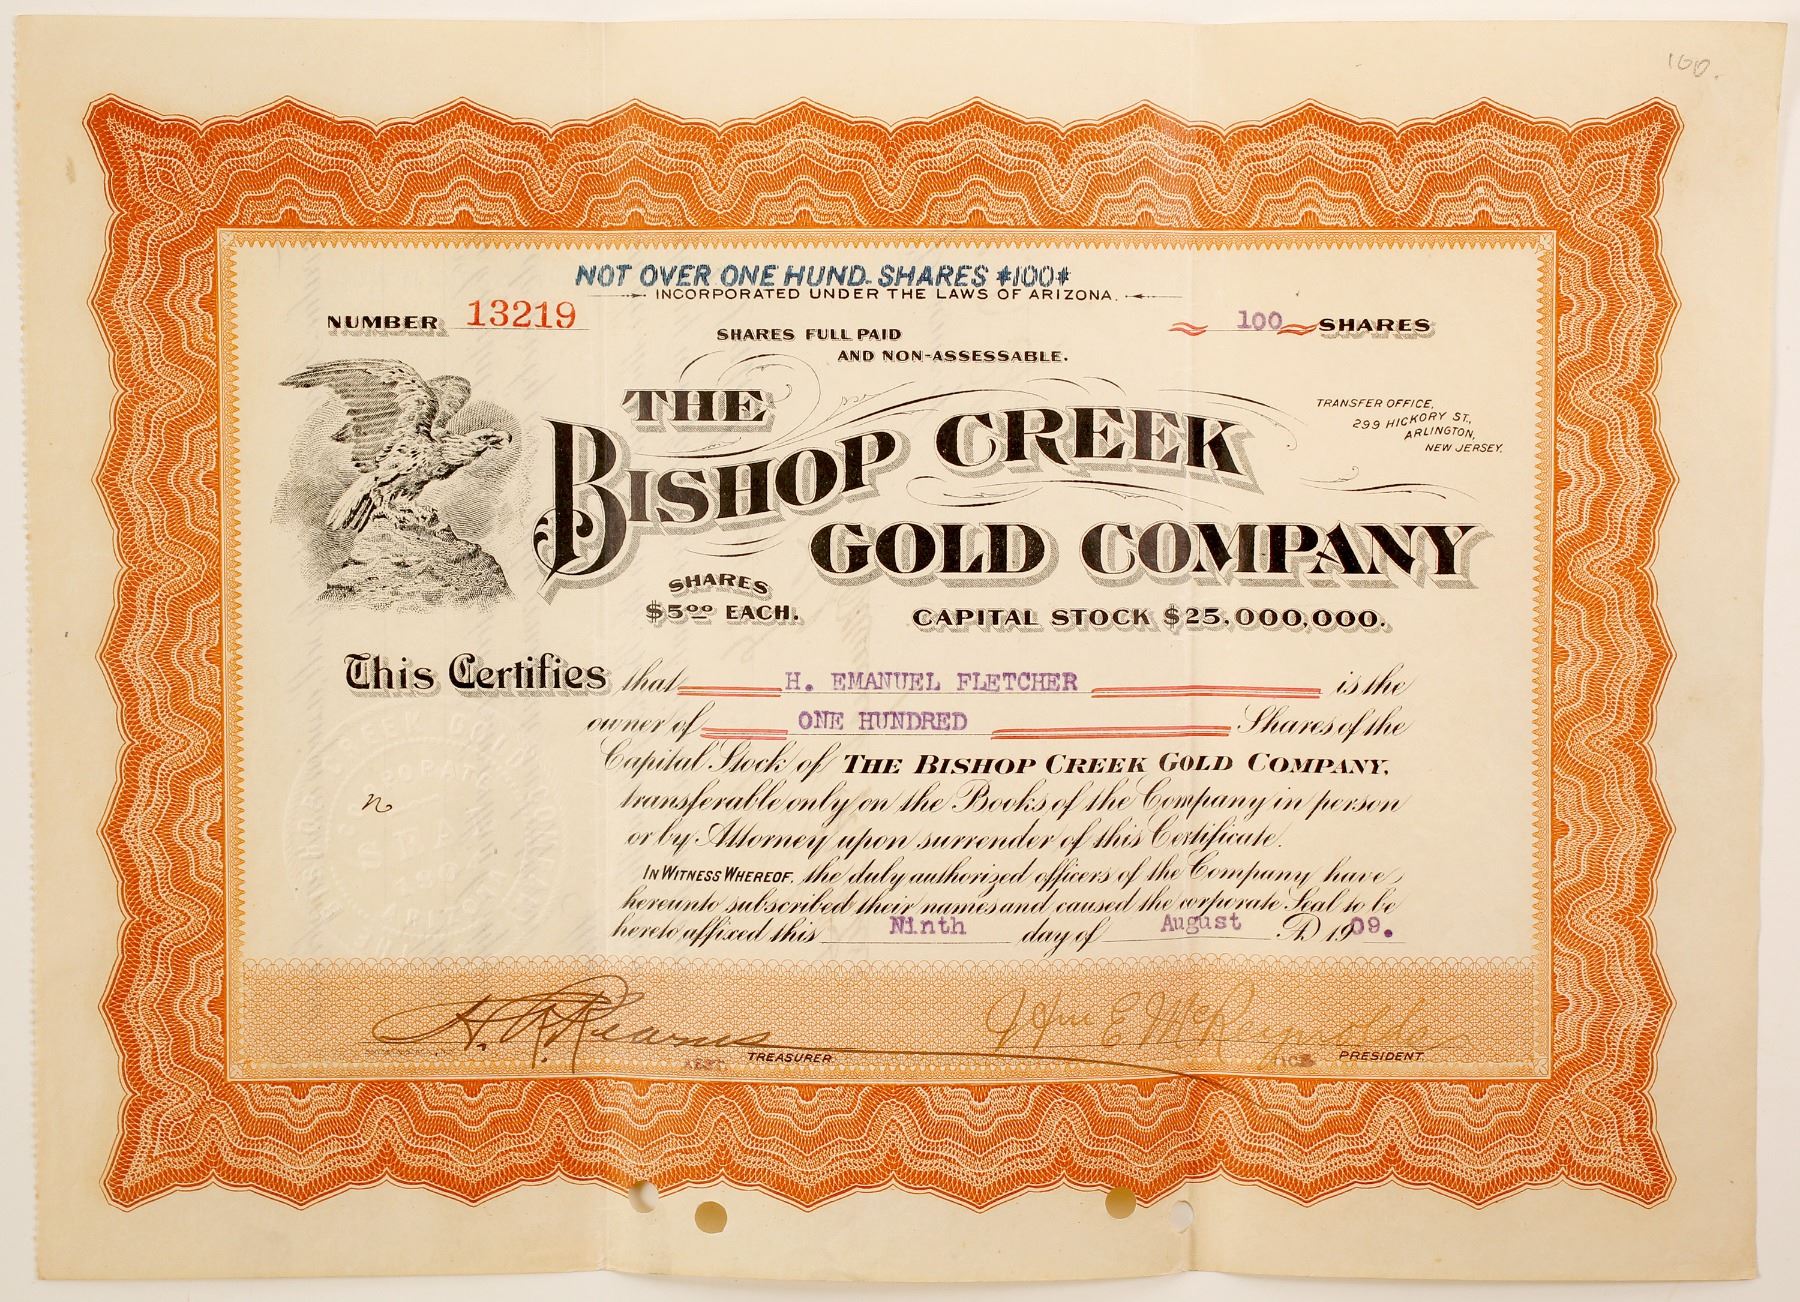 100.
NOT OVER ONE HUND. SHARES *100*
INCORPORATED UNDER THE LAWS OF ARIZONA.
NUMBER 13219
100 SHARES
SHARES FULL PAID
AND NON-ASSESSABLE.
THE
BISHOP CREEK
GOLD COMPANY
TRANSFER OFFICE,
299 HICKORY ST.,
ARLINGTON,
NEW JERSEY.
SHARES
$5.00 EACH.
CAPITAL STOCK $25,000,000.
This Certifies that H. EMANUEL FLETCHER is the
owner of ONE HUNDRED Shares of the
Capital Stock of THE BISHOP CREEK GOLD COMPANY,
transferable only on the Books of the Company in person
or by Attorney upon surrender of this Certificate.
IN WITNESS WHEREOF, the duly authorized officers of the Company have
hereunto subscribed their names and caused the corporate Seal to be
hereto affixed this Ninth day of August A.D. 1909.
n
CREEK GOLD
ARIZ
H. R. Kearns
ASST. TREASURER
John E McReynolds
VICE PRESIDENT